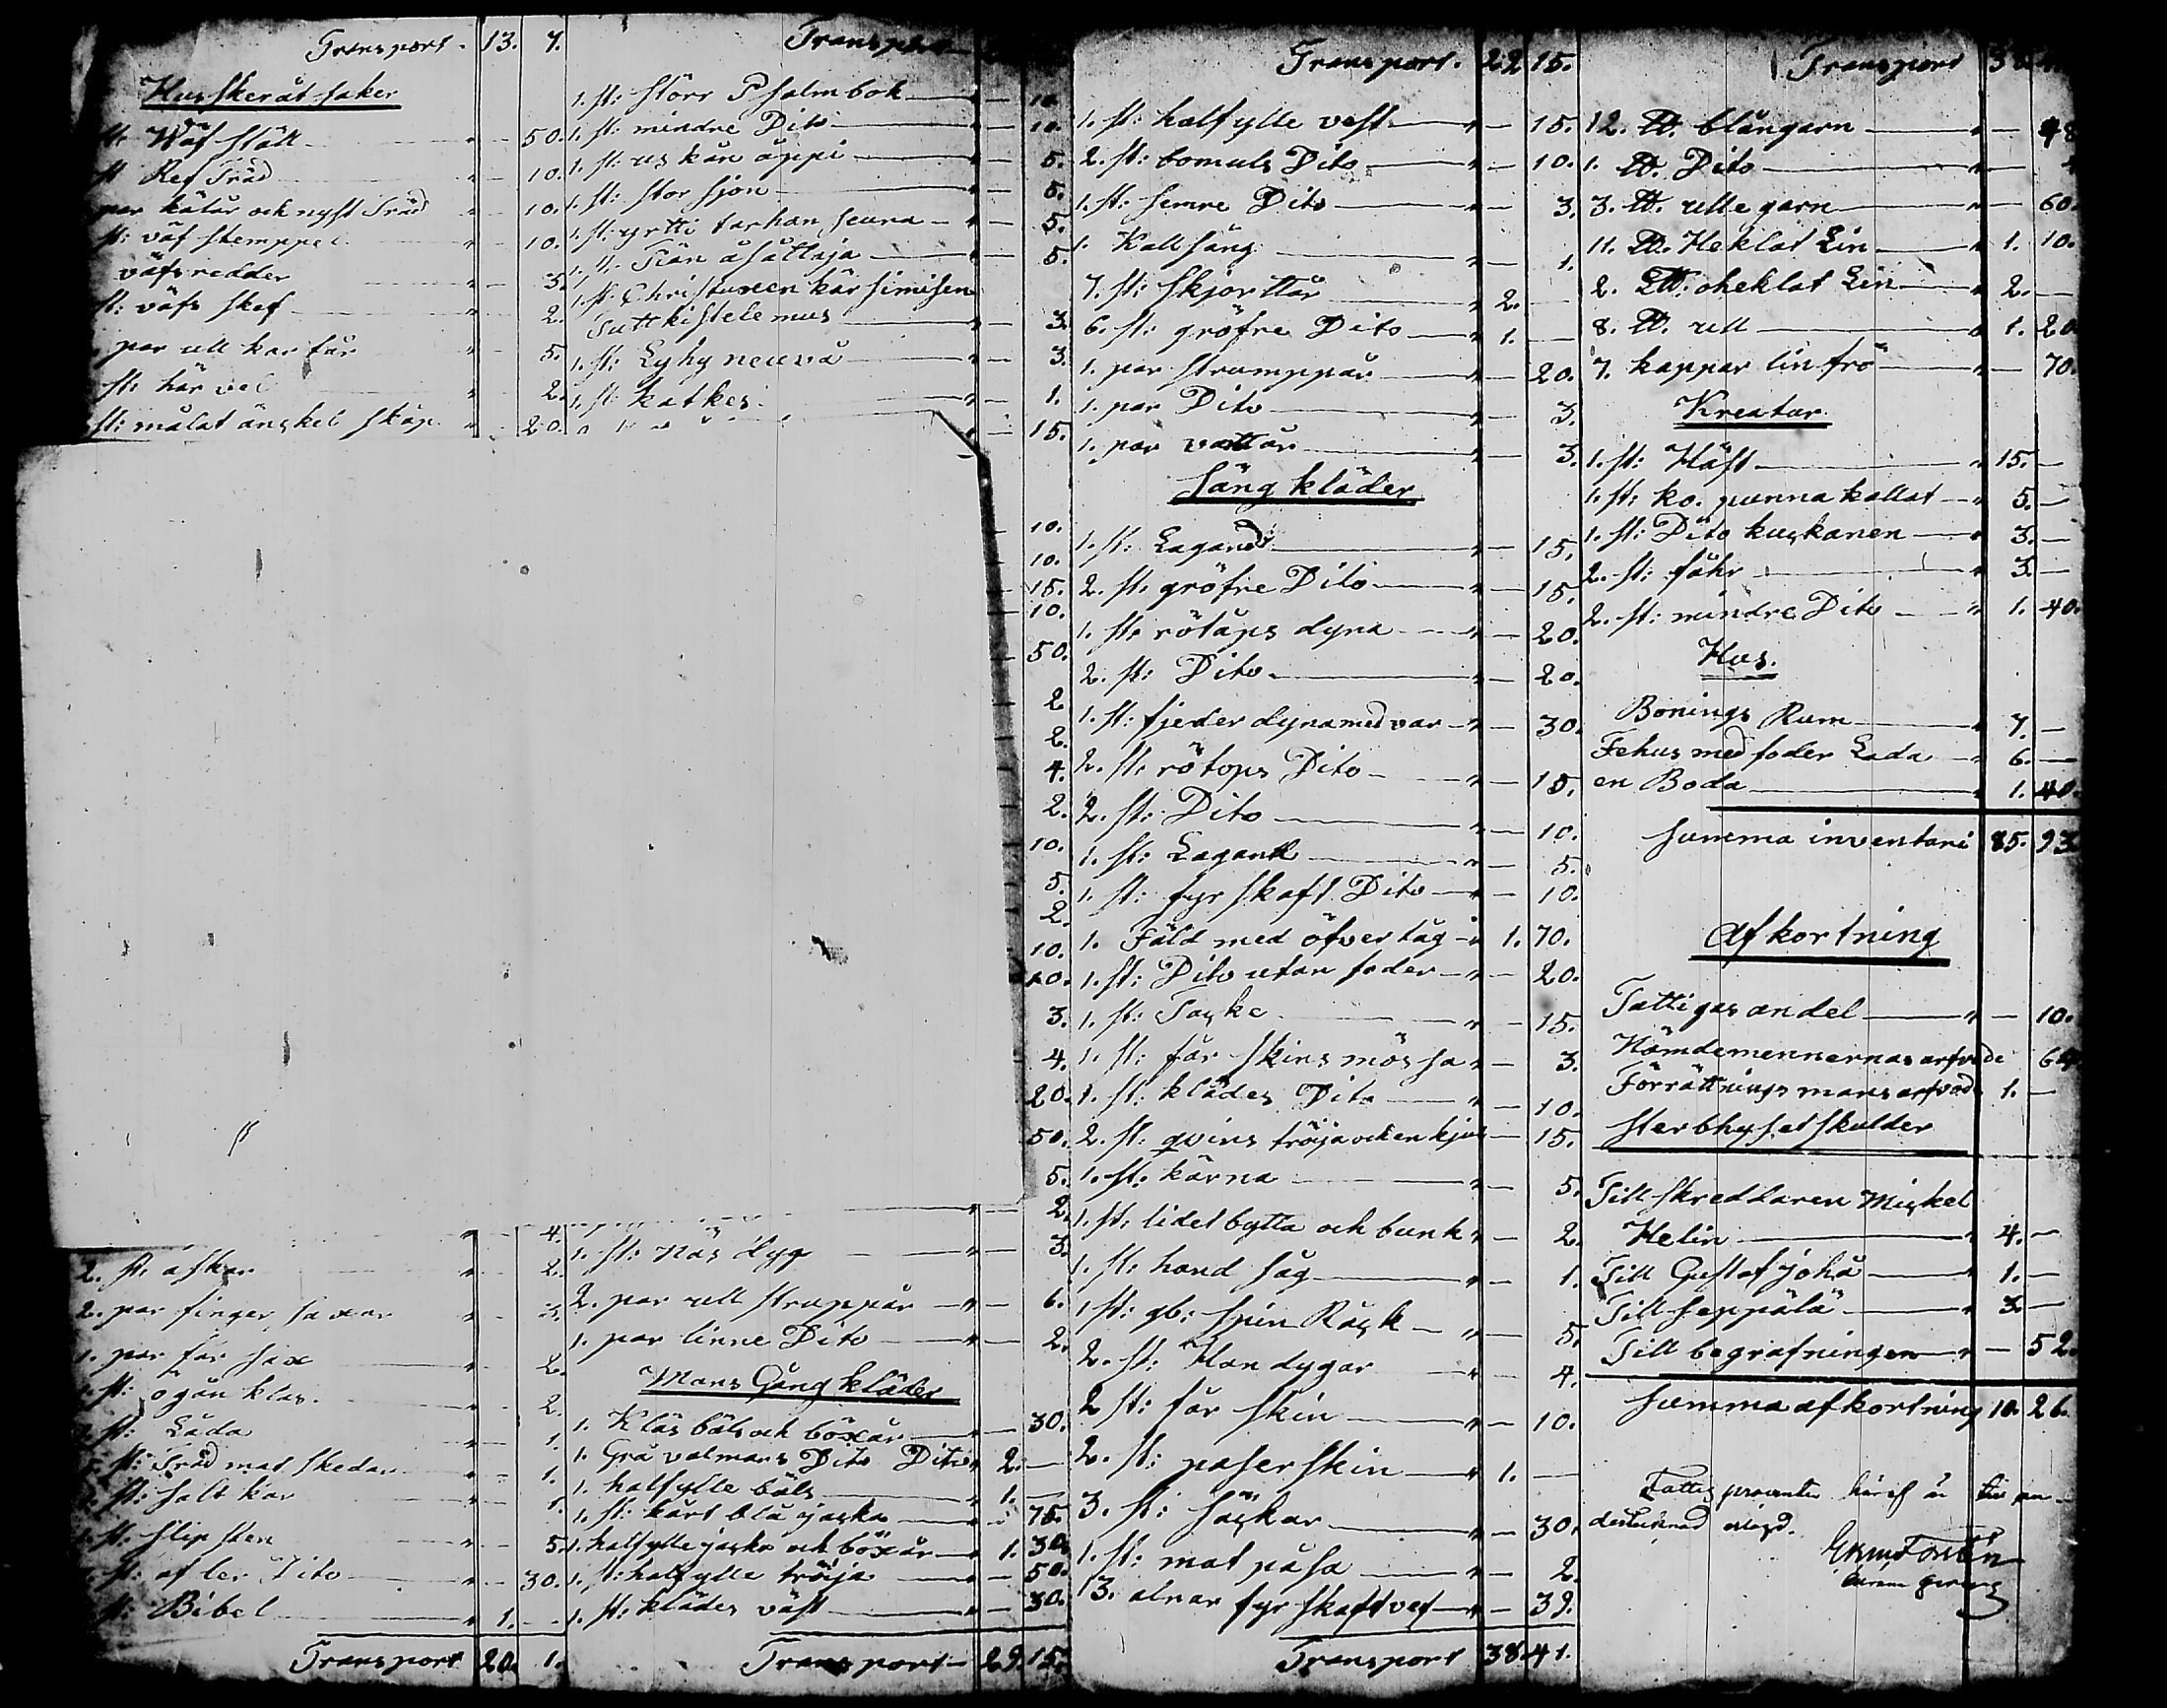 Transport - 13. 7.
Huskeråt saker
st. Wäf ställ - 50.
st Ref Träd - 10.
par kåtår och nyst Träd - 10.
st: väf stemppel - 10.
väfs redder - 5.
st: väfs skef - 2.
par ull kartår - 5.
st: här vel - 2.
st: målat änskel skåp - 20.
4.
2. st. askar - 2.
2. par finger saxar - 3.
1. par får sax - 2.
1. st: ögån klas. - 2.
st: Låda - 1.
st: Träd mat skedar - 1.
st: salt kar - 1.
1. st. slip sten - 5.
st: af ler Dito - 30.
st: Bibel 1. -
Transport 20. 1.
Transport
1. st: störr Psalmbok - 10.
1. st: mindre Dito - 10.
1. st: us kån åppi - 5.
1. st: stor sjon - 5.
1. st: yrtti tarhan seura - 5.
1. st. Tiän åsåttaja - 5.
1. st. Christuxen kär simisen
Suttkistelemus - 3.
1. st: Lyhy neuvå - 3.
1. st. katkes - 1.
15.
10.
10.
15.
10.
50.
2
2.
4.
2.
10.
5.
2.
10.
10.
3.
4.
20.
50.
5.
2.
1. st: näs dyg - 3.
2. par ull strappår - 6.
1. par linne Dito - 2.
Mans Gång kläder
1. Kläs bäls och böxår - 30.
1. Grå valmans Dito Dito 2. -
1. halfylle bäls 1. -
1. st: kårt blå jacka - 75.
1. halfylle jacka och böxår 1. 30.
1. st: halfylle tröija - 50.
1. st: klädes väst - 30.
Transport - 29. 15.
Transport. 29 15.
1. st: halfylle vest - 15.
2. st: bomuls Dito - 10.
1. st: semre Dito - 3.
1. Kallsång - 1.
7. st: skjorttår 2. -
6. st: gröfre Dito 1. -
1. par strumppår - 20.
1. par Dito - 3.
1. par vattår - 3.
Säng kläder
1. st: Lagand - 15.
2. st. gröfre Dito - 15.
1. st. rötåps dyna - 20.
2. st: Dito - 20.
1. st: fjeder dyna med var - 30.
2. st. rötops Dito - 15.
2. st: Dito - 10.
1. st: Lagand - 5.
1. st: fyr skaft Dito - 10.
1. Fäld med öfvertåg 1. 70.
1. st: Dito utan foder - 20.
1. st: Tacke - 15.
1. st: får skins mössa - 3.
1. st: klädes Dito - 10.
2. st. qvins tröja och en kjol - 15.
1. st: kärna - 5.
1. st. lidet bytta och bunk - 2.
1. st: hand såg - 1.
1 st: gb: spin Råck - 5.
2. st: Handygar - 4.
2 st: får skin - 10.
2. st: paserskin 1. -
3. st: säckar - 30.
1. st: mat påsa - 2.
13. alnar fyr skaft vef - 39.
Transport 38. 41.
Transport 38. 41
12. ℔. blångarn - 48
1. ℔. Dito -
3. ℔. ulle garn - 60.
11. ℔. Heklat Lin 1. 10.
2. L℔. oheklat Lin 2. -
8. ℔. ull 1. 20
7. kappar lin frö - 70.
Kreatur.
1. st: Häst 15. -
1. st: ko. punna kallat 5. -
1. st: Dito kuckanen 3. -
2. st: fåhr 3. -
2. st: mindre Dito 1. 40.
Hus.
Bonings Rum 7. -
Fehus med foder Lada 6. -
en Boda 1. 40.
Summa inventari 85. 93
Afkortning
Fattigas andel - 10.
Nämdemennernas arfvode 64
Förrättnings mans arfvod 1. -
Sterbhuset skulder
Till skreddaren Mickel
Helin 4. -
Till Gustaf johå 1. -
Till Seppälä 3. -
Till begrafningen - 52.
Summa afkortning 10. 26.
Fattig procenter häraf är
erlagd.